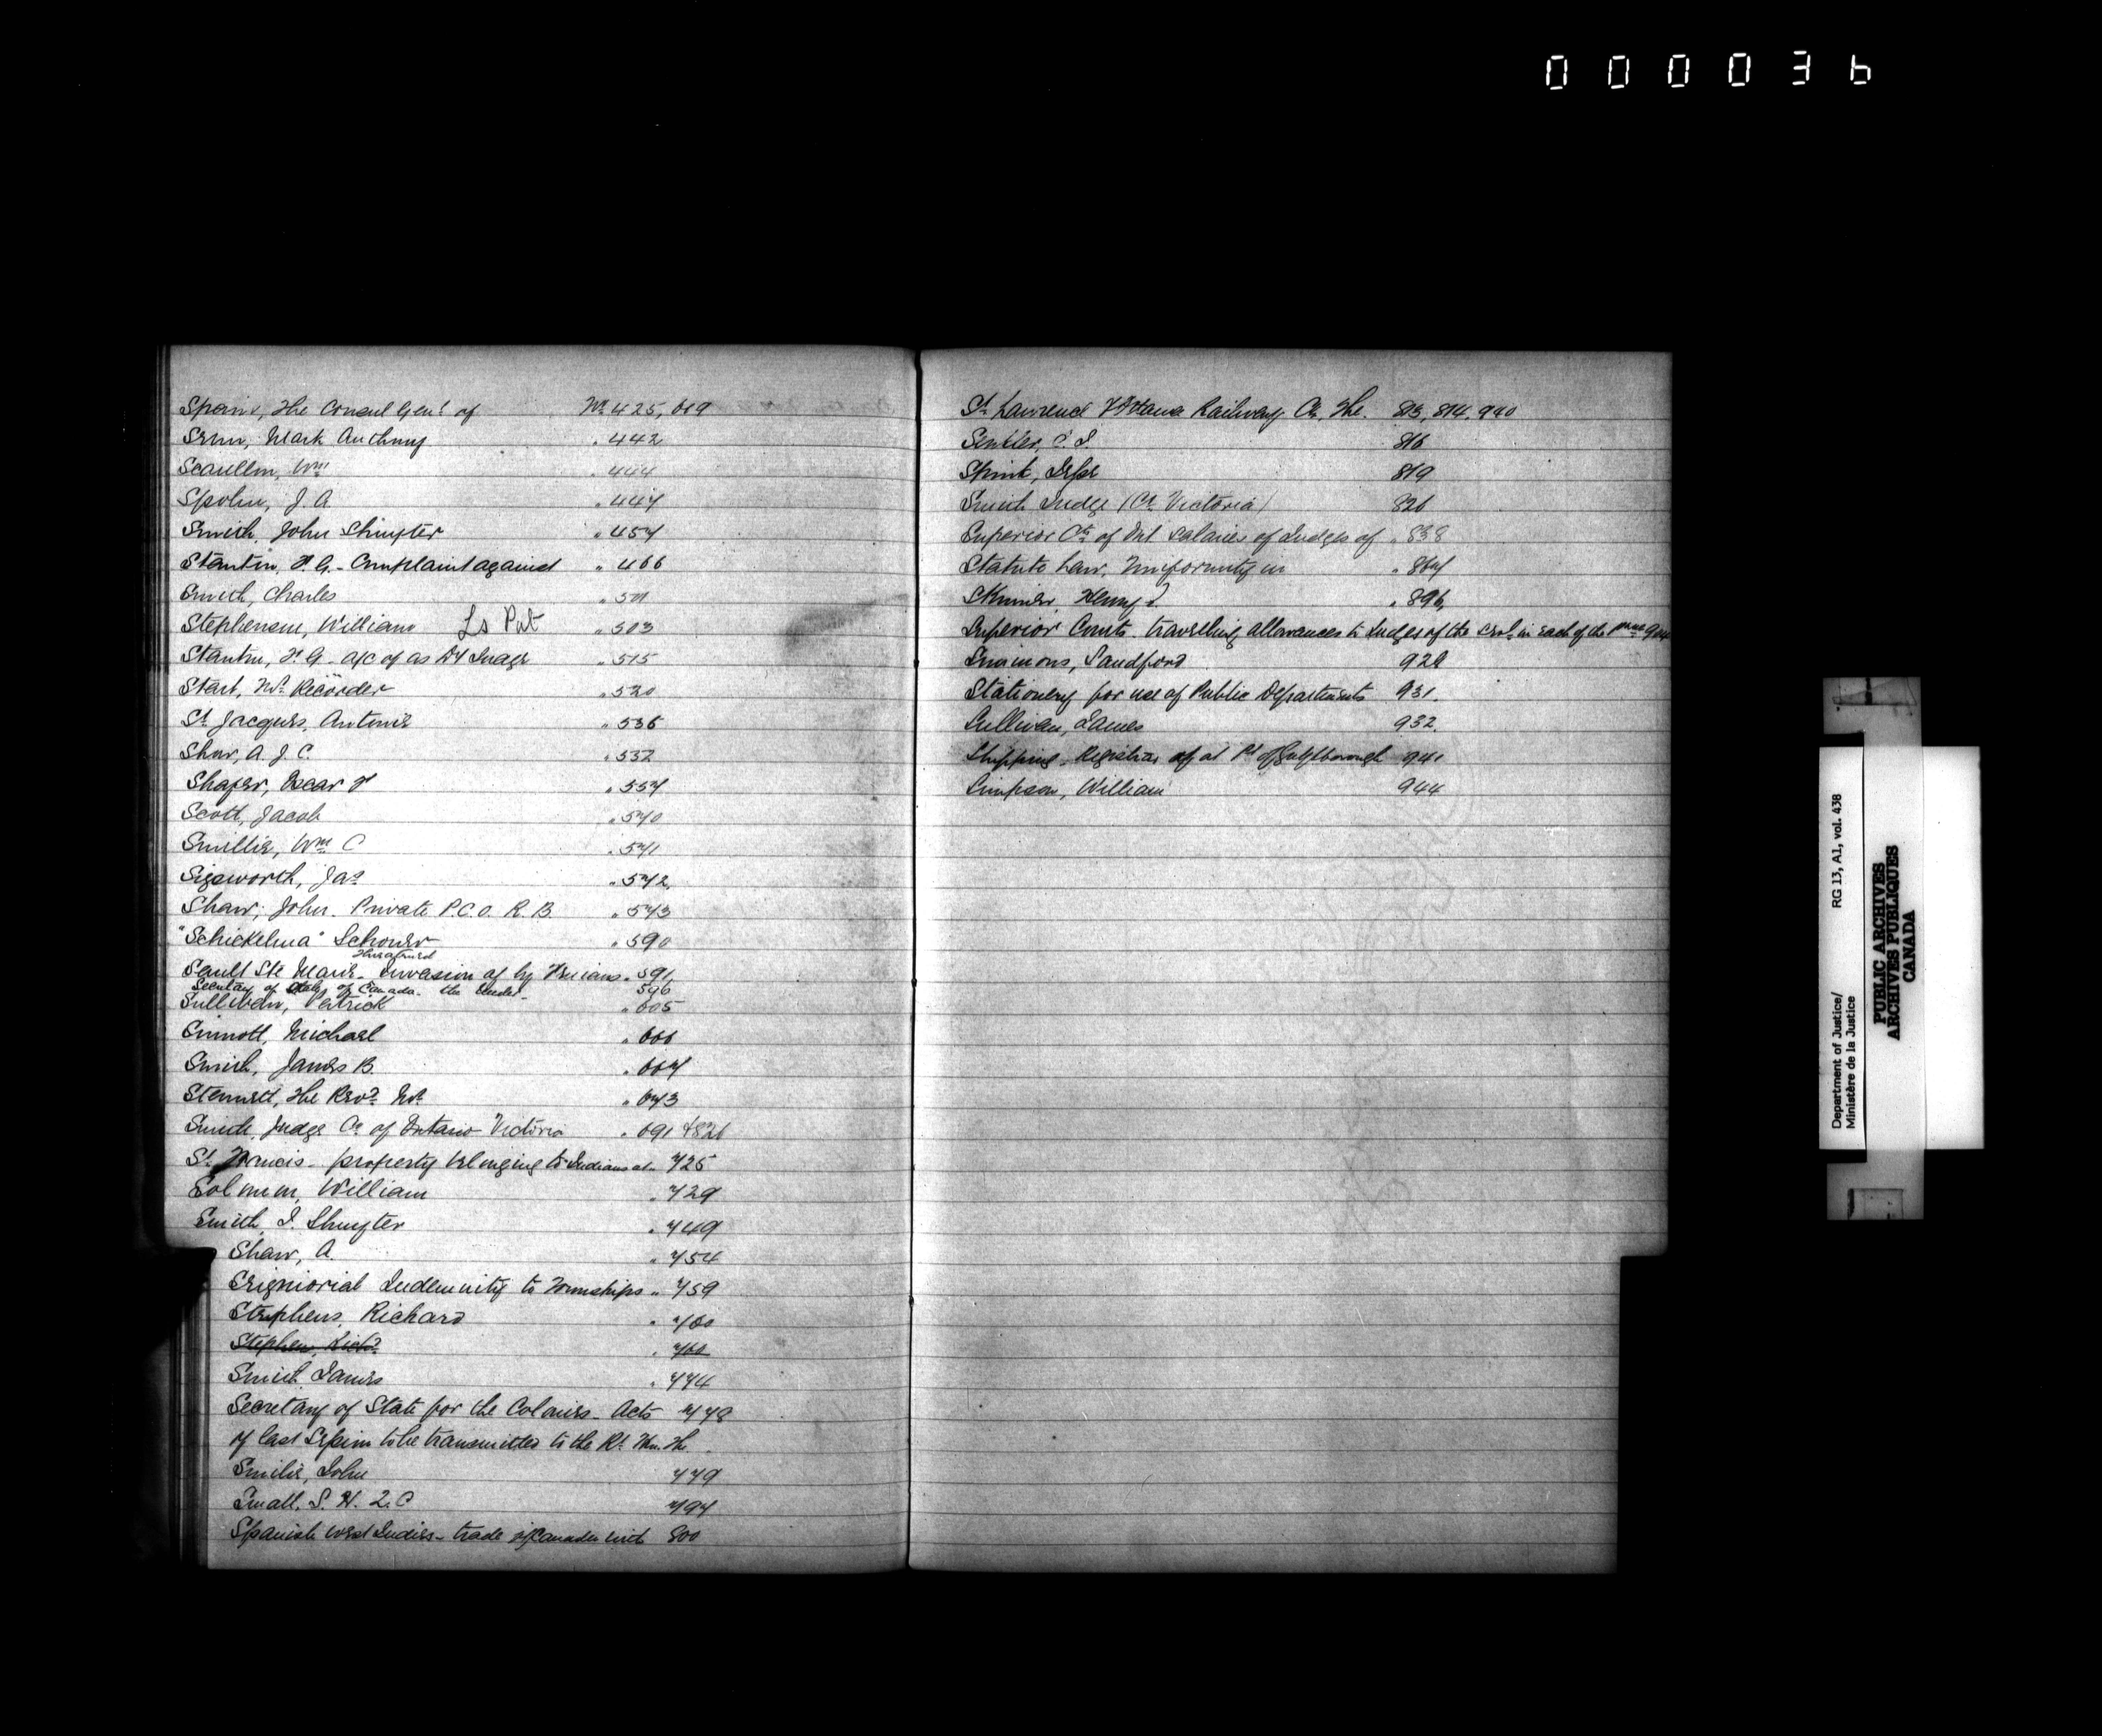 000036
Spain, The Consul Genl. of No. 425, 619
Mark Anthony " 442
Scanllon, Wm " 444
Spohn, J. A. " 447
Smith, John Shuyter " 457
Stanton, F. G. - Complaint against " 466
Smith, Charles " 501
Stephenson, William Ls Pat " 503
Stanton, F. G. - a/c of as Dy Judge " 515
Start, Mr. Recorder " 520
St. Jacques, Antoine " 536
Shaw, A. J. C. " 532
Shafer, Oscar F " 557
Scott, Jacob " 570
Smillie, Wm. C " 571
Sigsworth, Jas. " 572
Shaw, John. Private P.C.O. R. B. " 573
"Schickelma" Schooner " 590
Threatened
Sault Ste Marie - Invasion of by Fenians " 591
Secretary of State of Canada - the Under - 596
Sullivan, Patrick " 605
Sinnott, Michael " 666
Smith, James B. " 667
Stennett, The Revd. Mr. " 673
Smith, Judge Co. of Ontario Victoria " 691 & 826
St. Francis - property belonging to Indians at - 725
Solmon, William " 729
Smith, J. Shuyter " 749
Shaw, A. " 754
Seigniorial Indemnity to Townships " 759
Stephens, Richard " 760
Stephen, Richd. " 760
Smith James " 774
Secretary of State for the Colonies - Acts 778
of last Session to be transmitted to the Rt. Hon. The
Smilie, John 779
Small, S. H. 2. C 797
Spanish West Indies - trade of Canada with 800
St. Lawrence & Ottawa Railway Co. The. 813, 814, 940
C. J. 816
Spink, Jesse 819
Smith Judge (Co. Victoria) 826
Superior Cts. of Ont. salaries of Judges of " 838
Statute Law, Uniformity in " 867
Skinner, Henry J. " 896,
Superior Courts - travelling allowances to Judges of the in each of the
Simmons, Sandford 929
Stationery for use of Public Departments 931.
Sullivan, James 932.
Shipping - Registrar of at Pt. of 941
Simpson, William 944
Department of Justice/
Ministère de la Justice
RG 13, A1, vol. 438
PUBLIC ARCHIVES
ARCHIVES PUBLIQUES
CANADA